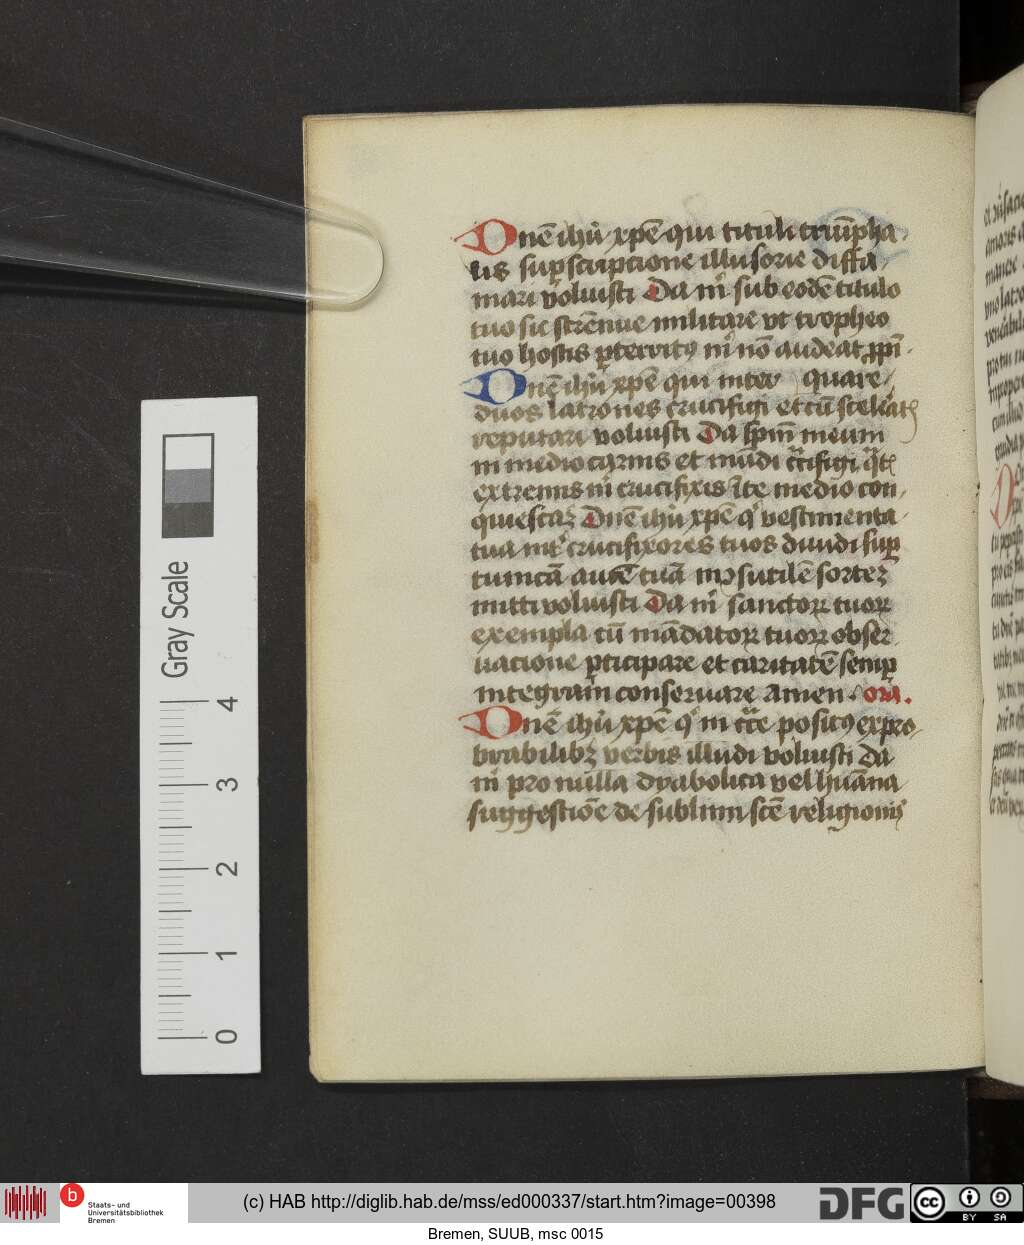 Dnē ihū xpē qui tituli triūpha
lis sup̄scriptione illusorie diffa
mari voluisti Da m̄ sub eodē titulo
tuo sic strēnue militare vt tropheo
tuo hostis ꝓteruitꝯ m̄ nō audeat
Dnē ihū xpē qui inter quare
duos latrones crucifigi et cū
reputari voluisti Da spm̄ meum
in medio carnis et mūdi
extremis m̄ crucifixis medio con
quiescaꝫ Dnē ihū xpē qͥ vestimenta
tua int̄ crucifixores tuos diuidi suꝑ
tunicā autē tuā insutilē sorteꝫ
mitti voluisti Da m̄ sanctoꝝ tuoꝝ
exempla cū mādatoꝝ tuoꝝ obser
uatione ꝑticipare et caritatē semꝑ
integram conseruare Amen. ora.
Dnē ihū xpē qͥ in cͣce positꝯ expro
brabilibꝫ verbis illudi voluisti da
m̄ pro nulla dyabolica vel huāna
suggestiōe de sublimi scē religionis
Gray Scale
0 1 2 3 4
b
Staats- und
Universitätsbibliothek
Bremen
(c) HAB http://diglib.hab.de/mss/ed000337/start.htm?image=00398
DFG
cc BY SA
Bremen, SUUB, msc 0015